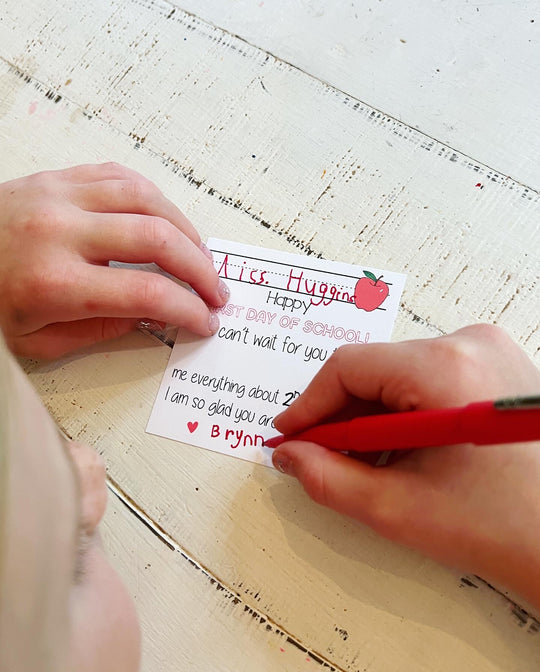 Miss. Huggins
Happy
FIRST DAY OF SCHOOL!
can't wait for you
me everything about 2
I am so glad you are
Brynn